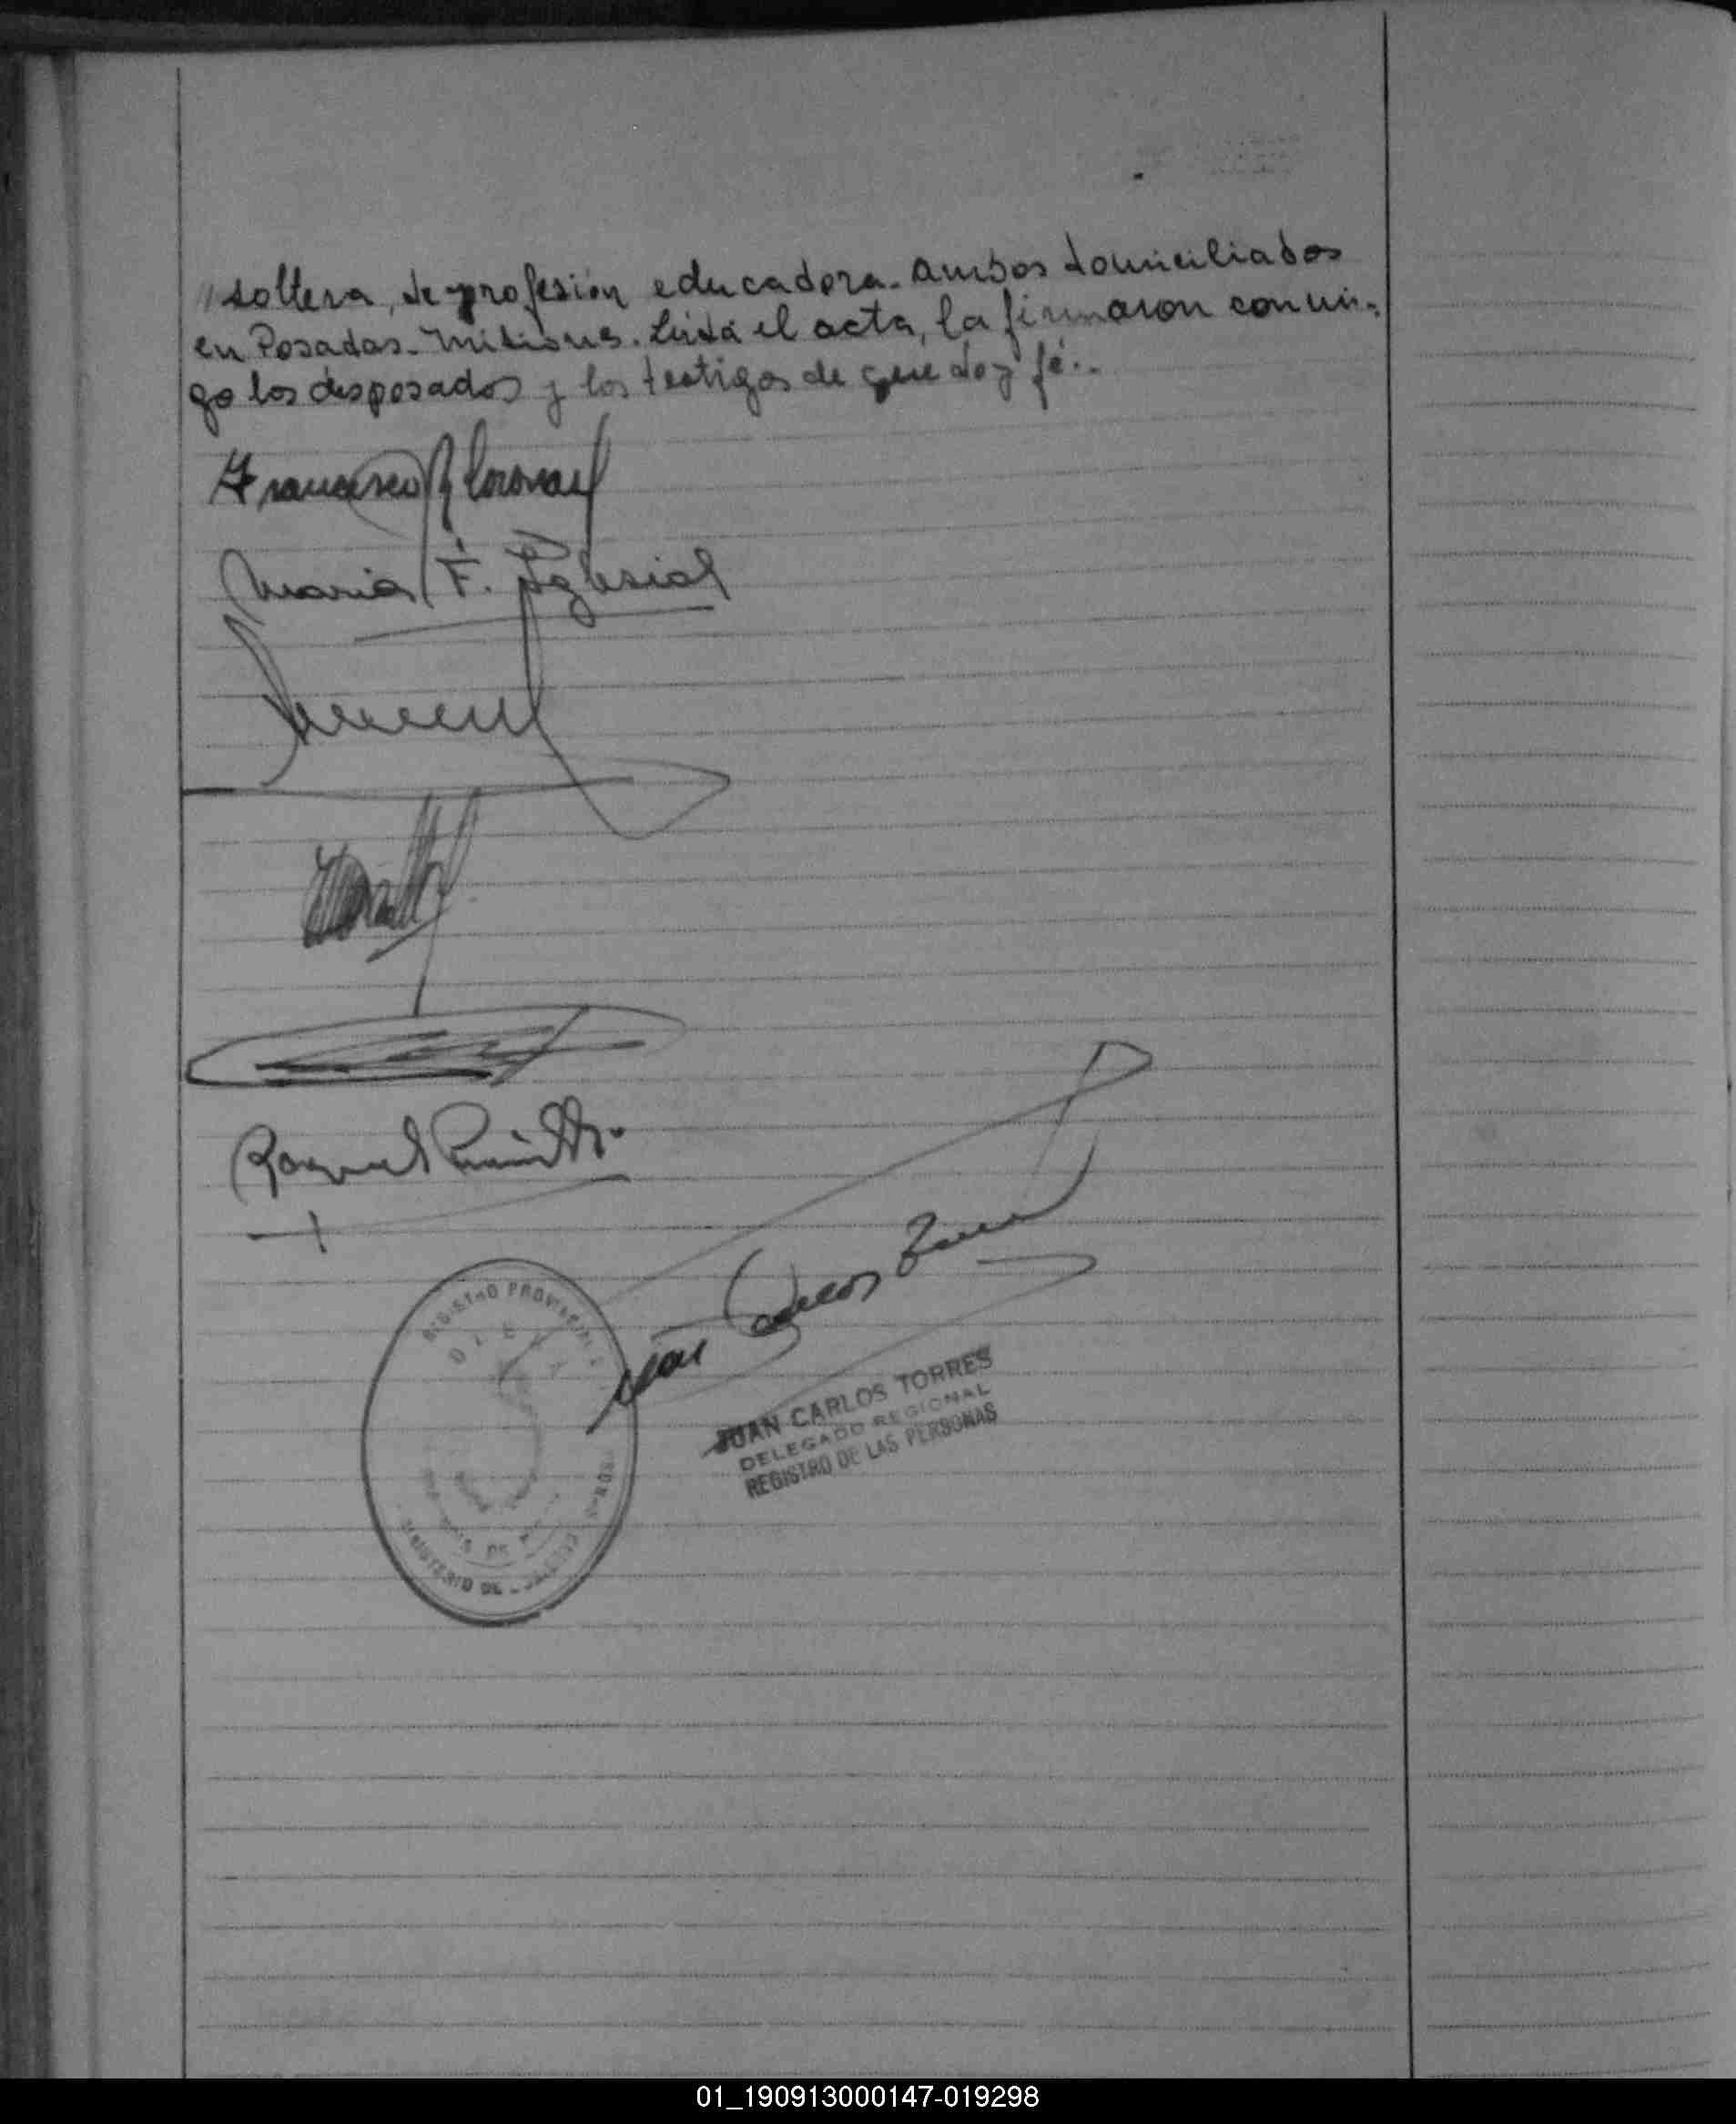 // soltera, de profesión educadora. Ambos domiciliados
en Posadas. Misiones. Leida el acta, la firmaron conmi-
go los desposados y los testigos de que doy fé..
Francisco
Maria F. Iglesias
Raquel
REGISTRO PROVINCIAL
MINISTERIO DE
Juan Carlos Torres
JUAN CARLOS TORRES
DELEGADO REGIONAL
REGISTRO DE LAS PERSONAS
01_190913000147-019298